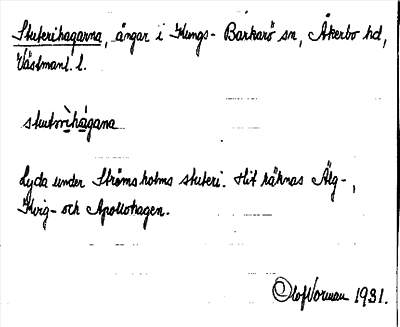 Stuterihagarna, ängar i Kungs-Barkarö sn, Åkerbo hd,
Västmanl. l.
stutrri`hà̀gana
Lyda under Strömsholms stuteri. Hit räknas Älg-,
Kvig- och Apollohagen.
Olof Norman 1931.